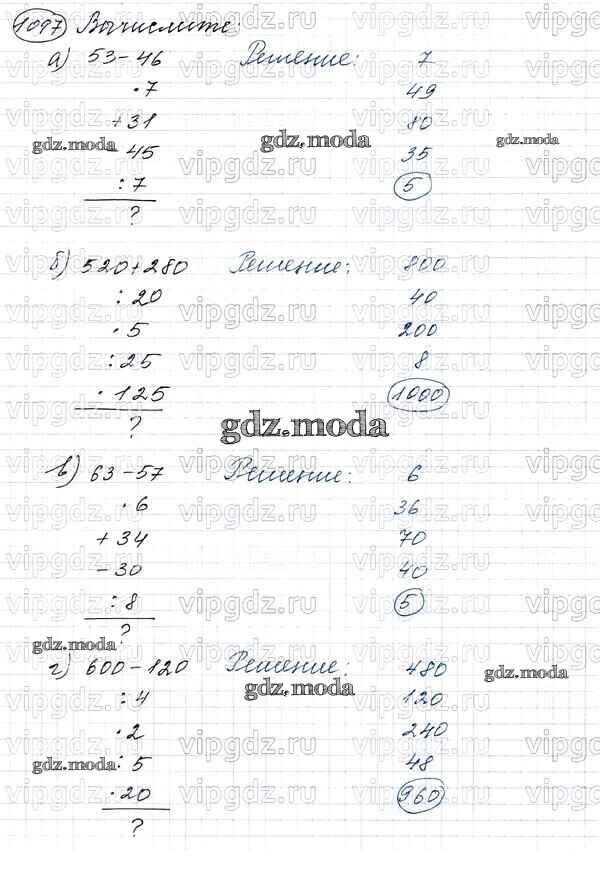 1097 Вычислите:
а) 53-46 Решение: 7
·7 49
+31 80
-45 35
:7 5
?
б) 520+280 Решение: 800
:20 40
·5 200
:25 8
·125 1000
?
в) 63-57 Решение: 6
·6 36
+34 70
-30 40
:8 5
?
г) 600-120 Решение: 480
:4 120
·2 240
:5 48
·20 960
?
gdz.moda
vipgdz.ru